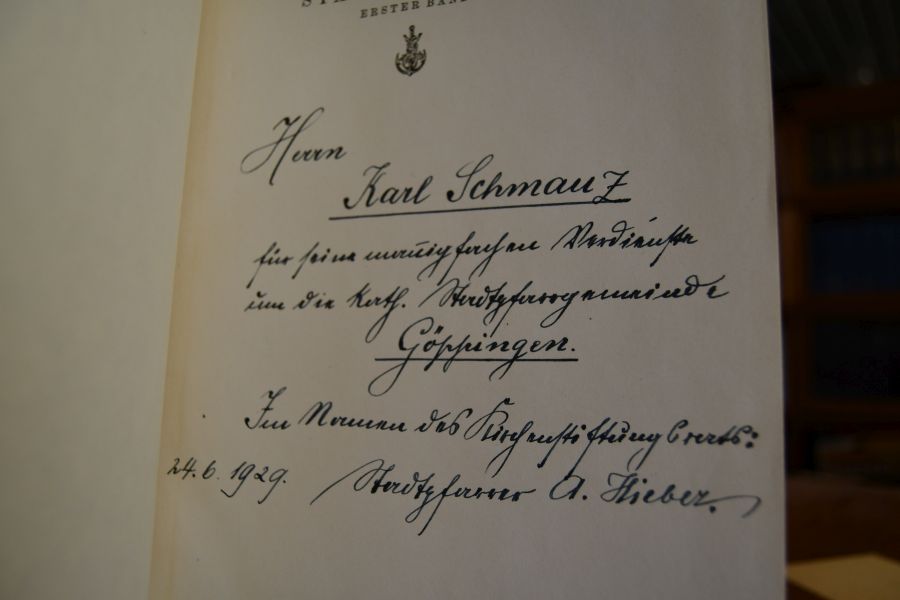 ERSTER BAND
Herrn
Karl Schmauz
für seine manigfachen Verdienste
um die kath. Stadtpfarrgemeinde
Göppingen.
Im Namen des Kirchenstiftungsrats:
24.6.1929. Stadtpfarrer A. Hieber.